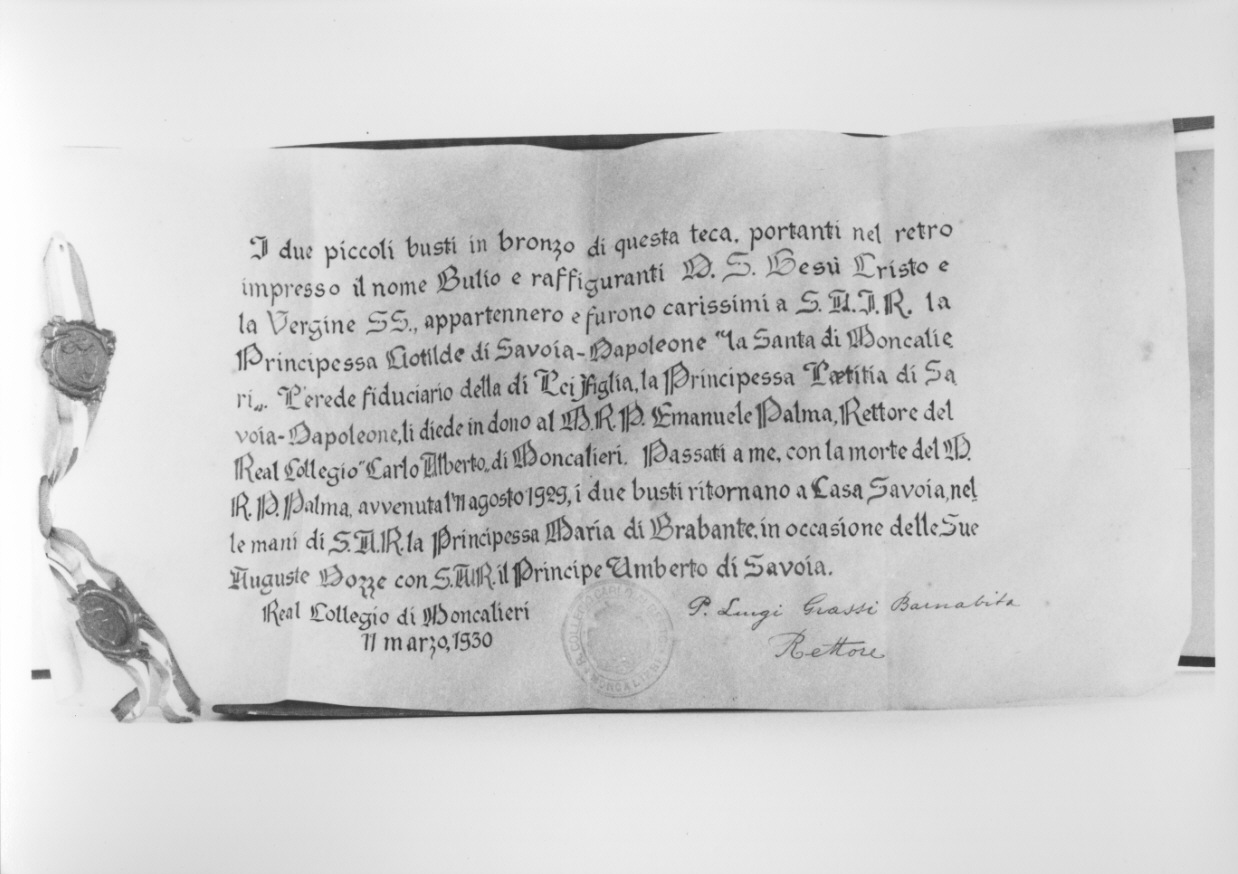 I due piccoli busti in bronzo di questa teca, portanti nel retro
impresso il nome Gulio e raffiguranti N. S. Gesù Cristo e
la Vergine SS., appartennero e furono carissimi a S.A.I.R. la
Principessa Clotilde di Savoia-Napoleone "la Santa di Moncalie
ri„. L'erede fiduciario della di Lei figlia, la Principessa Lætitia di Sa
voia-Napoleone, li diede in dono al M.R.P. Emanuele Palma, Rettore del
Real Collegio "Carlo Alberto„ di Moncalieri. Passati a me, con la morte del M.
R.P. Palma, avvenuta l'11 agosto 1929, i due busti ritornano a Casa Savoia, nel
le mani di S.A.R. la Principessa Maria di Brabante, in occasione delle Sue
Auguste Nozze con S.A.R. il Principe Umberto di Savoia.
Real Collegio di Moncalieri
11 marzo, 1930
P. Luigi Grassi Barnabita
Rettore
R. COLLEGIO CARLO ALBERTO
MONCALIERI